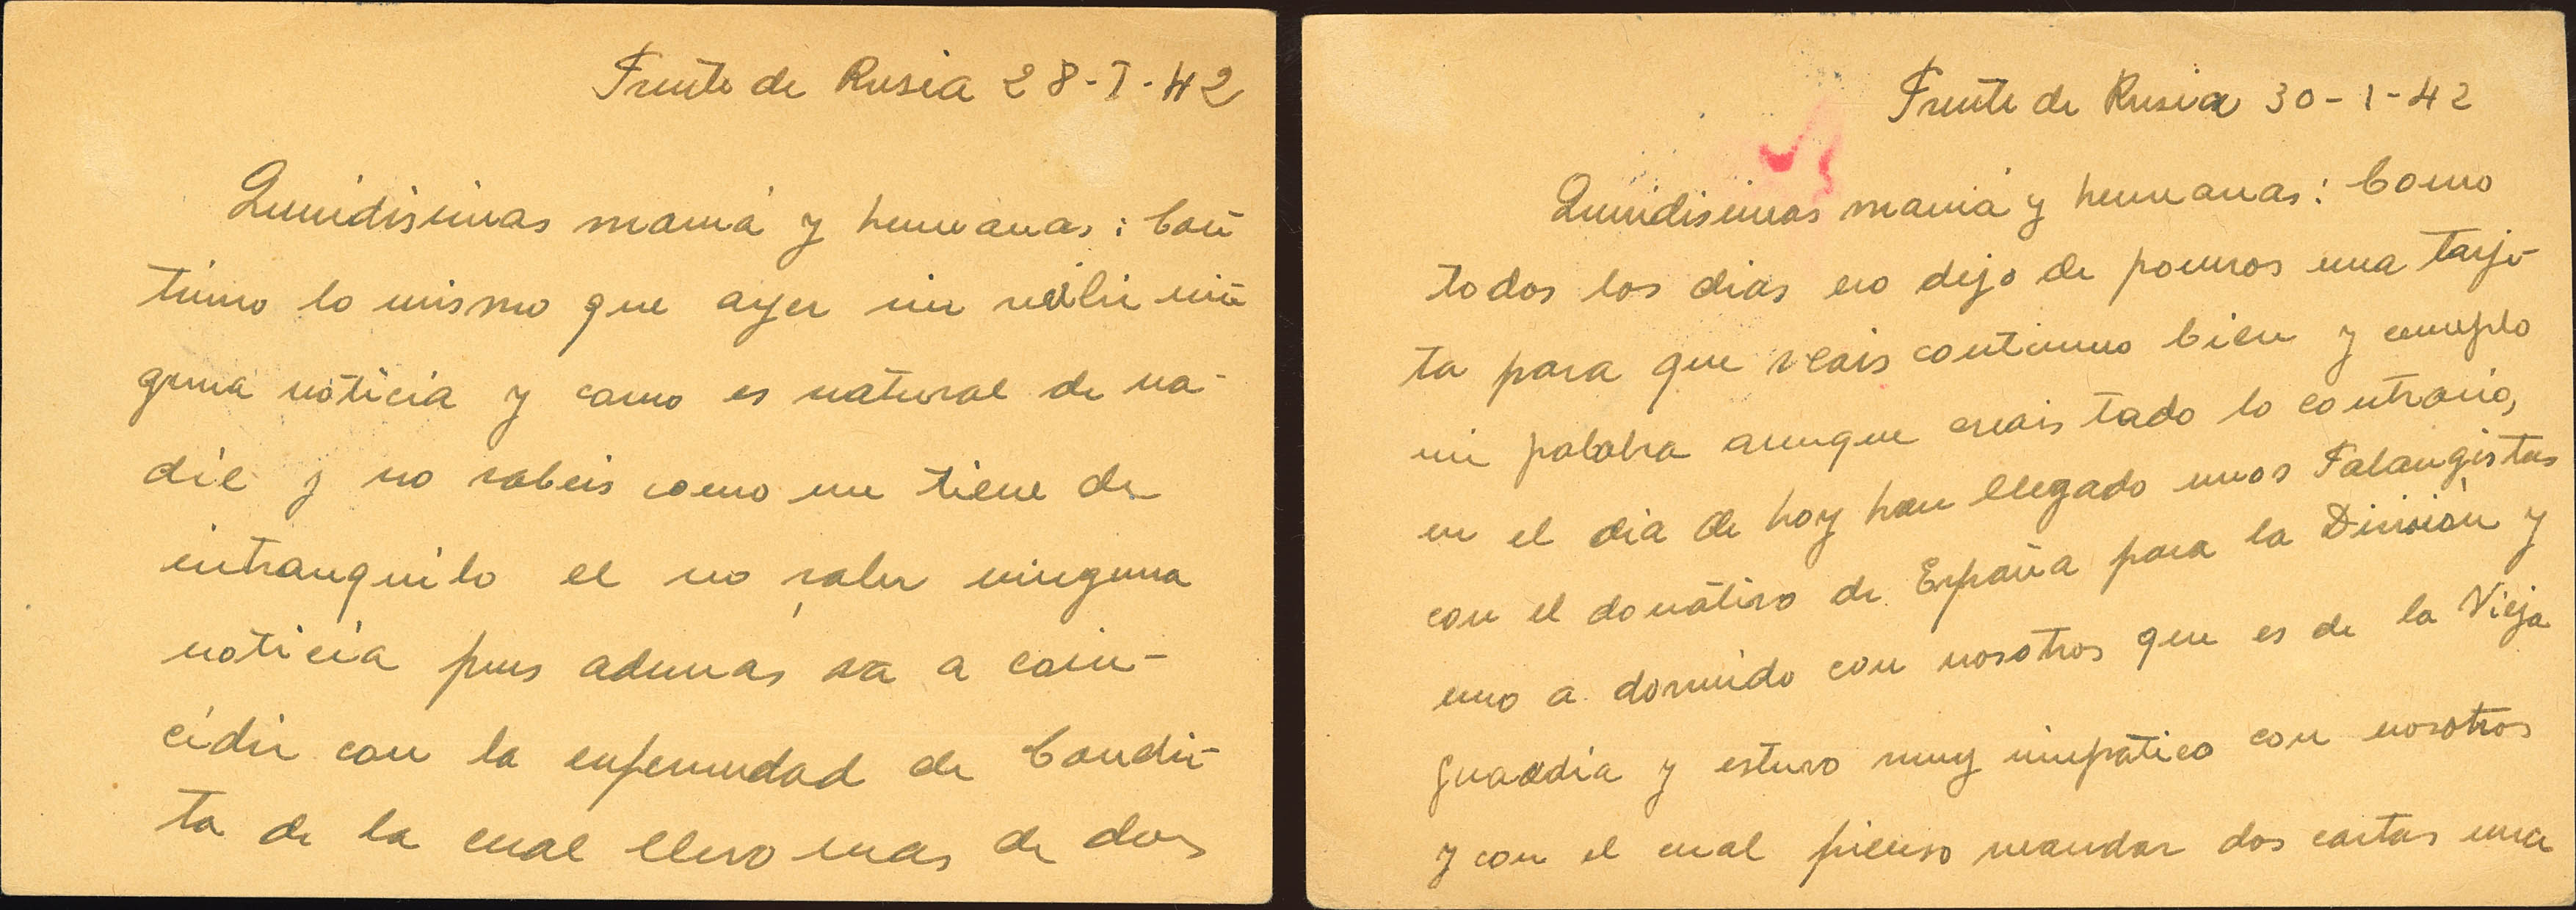 Frente de Rusia 28-I-42
Queridisimas mamá y hermanas: Con
tinuo lo mismo que ayer sin recibir nin
guna noticia y como es natural de na-
die y no sabeis como me tiene de
intranquilo el no saber ninguna
noticia pues ademas va a coin-
cidir con la enfermedad de Condi-
ta de la cual llevo mas de dos
Frente de Rusia 30-1-42
Queridisimas mamá y hermanas: Como
todos los dias no dejo de poneros una tarje-
ta para que veais continuo bien y cumplo
mi palabra aunque creais todo lo contrario,
en el dia de hoy han llegado unos Falangistas
con el donativo de España para la División y
uno a dormido con nosotros que es de la Vieja
guardia y estuvo muy simpático con nosotros
y con el cual pienso mandar dos cartas una